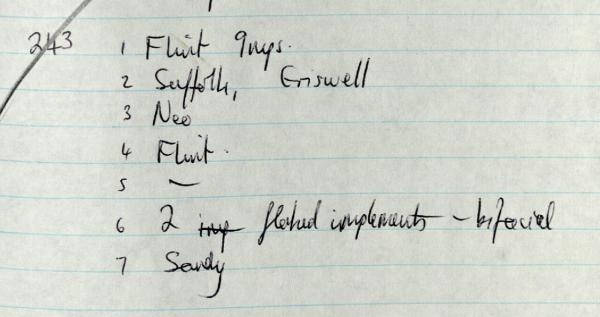 243 1 Flint Imps.
2 Suffolk, Eriswell
3 Neo
4 Flint.
5 —
6 2 imp flaked implements - bifacial
7 Sandy